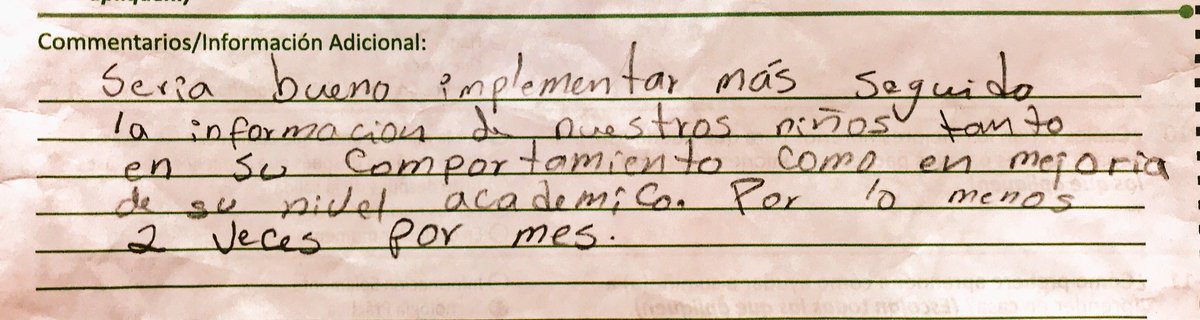 Commentarios/Información Adicional:
Seria bueno implementar más seguido
la informacion de nuestros niños tanto
en su comportamiento como en mejoria
de su nivel academico. Por lo menos
2 veces por mes.